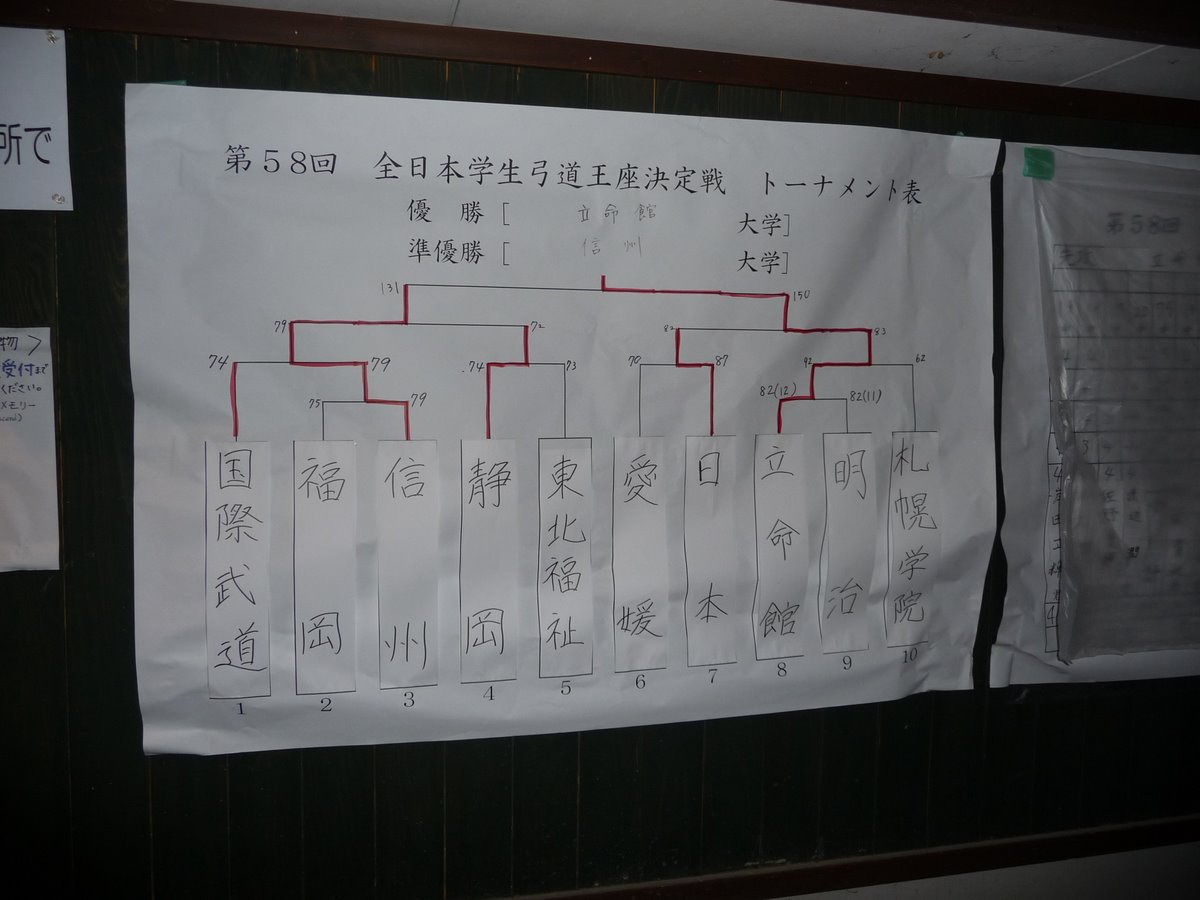 所で
第58回 全日本学生弓道王座決定戦 トーナメント表
優 勝 [ 立命館 大学]
準優勝 [ 信 州 大学]
131 150
79 72 82 83
74 79 74 73 70 87 92 62
75 79 82(12) 82(11)
国際武道
福岡
信州
静岡
東北福祉
愛媛
日本
立命館
明治
札幌学院
1 2 3 4 5 6 7 8 9 10
物>
受付まで
ください。
メモリー
第58回